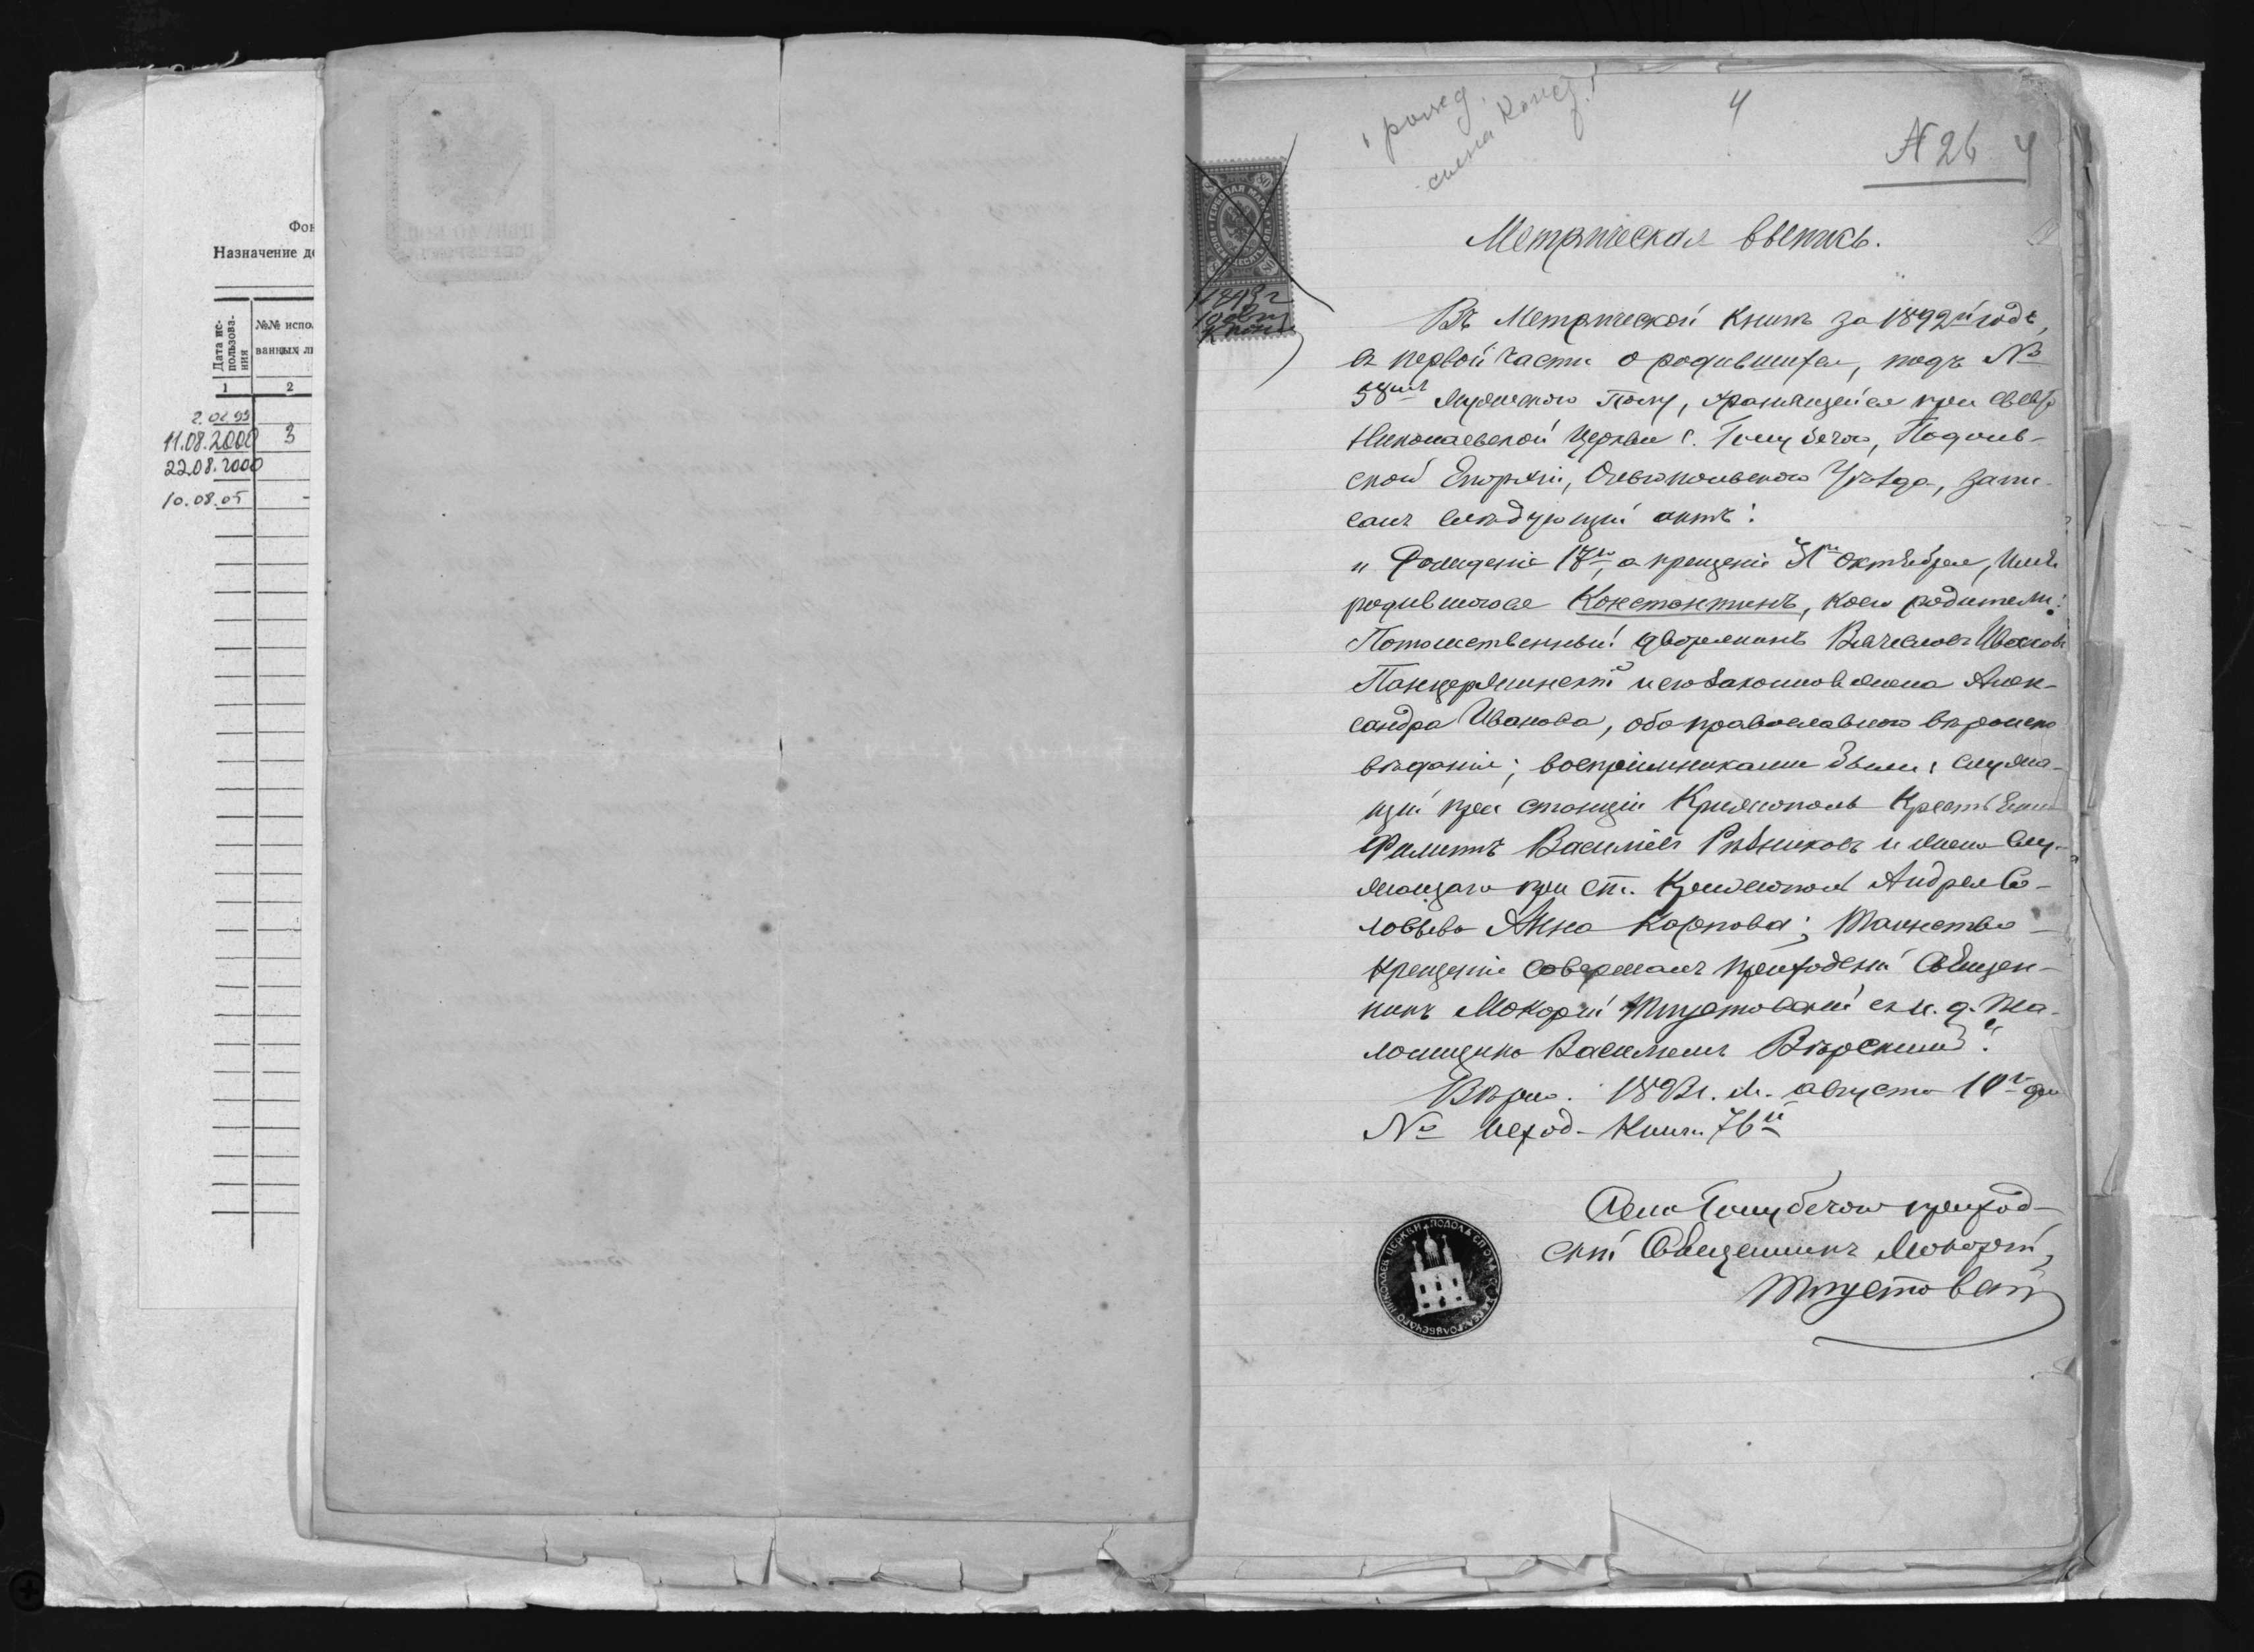 Фон
Назначение де
Дата ис-
пользова-
ния
№№ испо.
ванных ли
1 2
2.02.99
11.08.2000 3
22.08.2000
10.08.05 -
рожд.
сына Конст.
4
№ 26 4
ГЕРБОВАЯ МАРКА
80
1893 г
10 авг
Метрическая выпись.
Въ Метрической книгѣ за 1892й годъ,
въ первой части о родившихся, подъ №
58мъ мужескаго полу, хранящейся при Свято
Николаевской Церкви с. Голубечаго, Подоль-
ской Епархіи, Ольгопольского Уѣзда, запи-
санъ слѣдующій актъ:
„ Рожденіе 17го, а крещеніе 31го Октября, имя
родившагося Константинъ, коего родители:
Потомственный дворянинъ Вячеславъ Ивановъ
Панцержинскій и его законная жена Алек-
сандра Иванова, оба православнаго вѣроиспо
вѣданія; воспріемниками были: служа-
щій при станціи Крижополь Крестьянинъ
Филиппъ Васильевъ Рѣзниковъ и жена слу-
жащаго при ст. Крижополь Андрея Со-
ловьева Анна Карпова; Таинство
крещенія совершалъ приходскій Священ-
никъ Макарій съ и. д. Пса-
ломщика Василіемъ
Вѣрно. 1893 г. м. августа 10го дня
№ исход. книги 76й
Села Голубечаго приход-
скій Священникъ Макарій